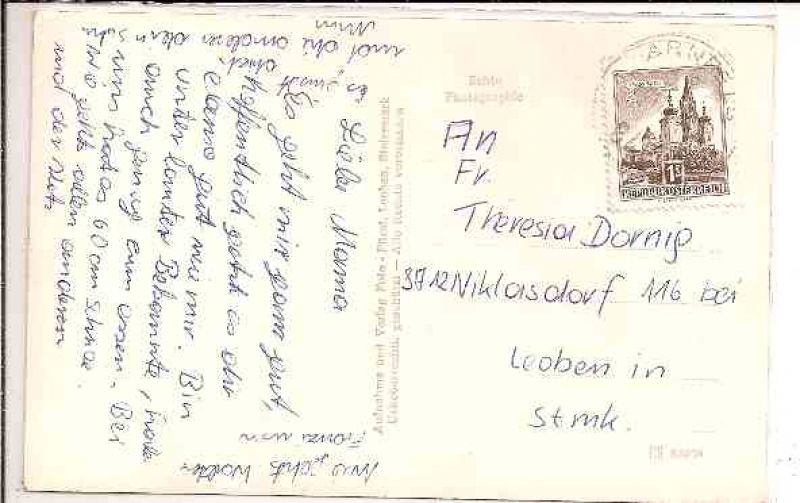 Liebe Mama
Es geht mir ganz gut,
hoffentlich geht es dir
genau gut wie mir. Bin
unter lauter Bekannte, habe
auch genug zum essen. Bei
uns hat es 60 cm Schnee.
Wie geht allen anderen
und der
und die anderen
Wie geht's Walter
Echte
Photographie
Aufnahme und Verlag Foto-Fürst, Leoben, Steiermark
gesch — Alle Rechte vorbehalten
An
Fr.
Theresia Dornig
8712 Niklasdorf 116 bei
Leoben in
Stmk.
1S
REPUBLIK ÖSTERREICH